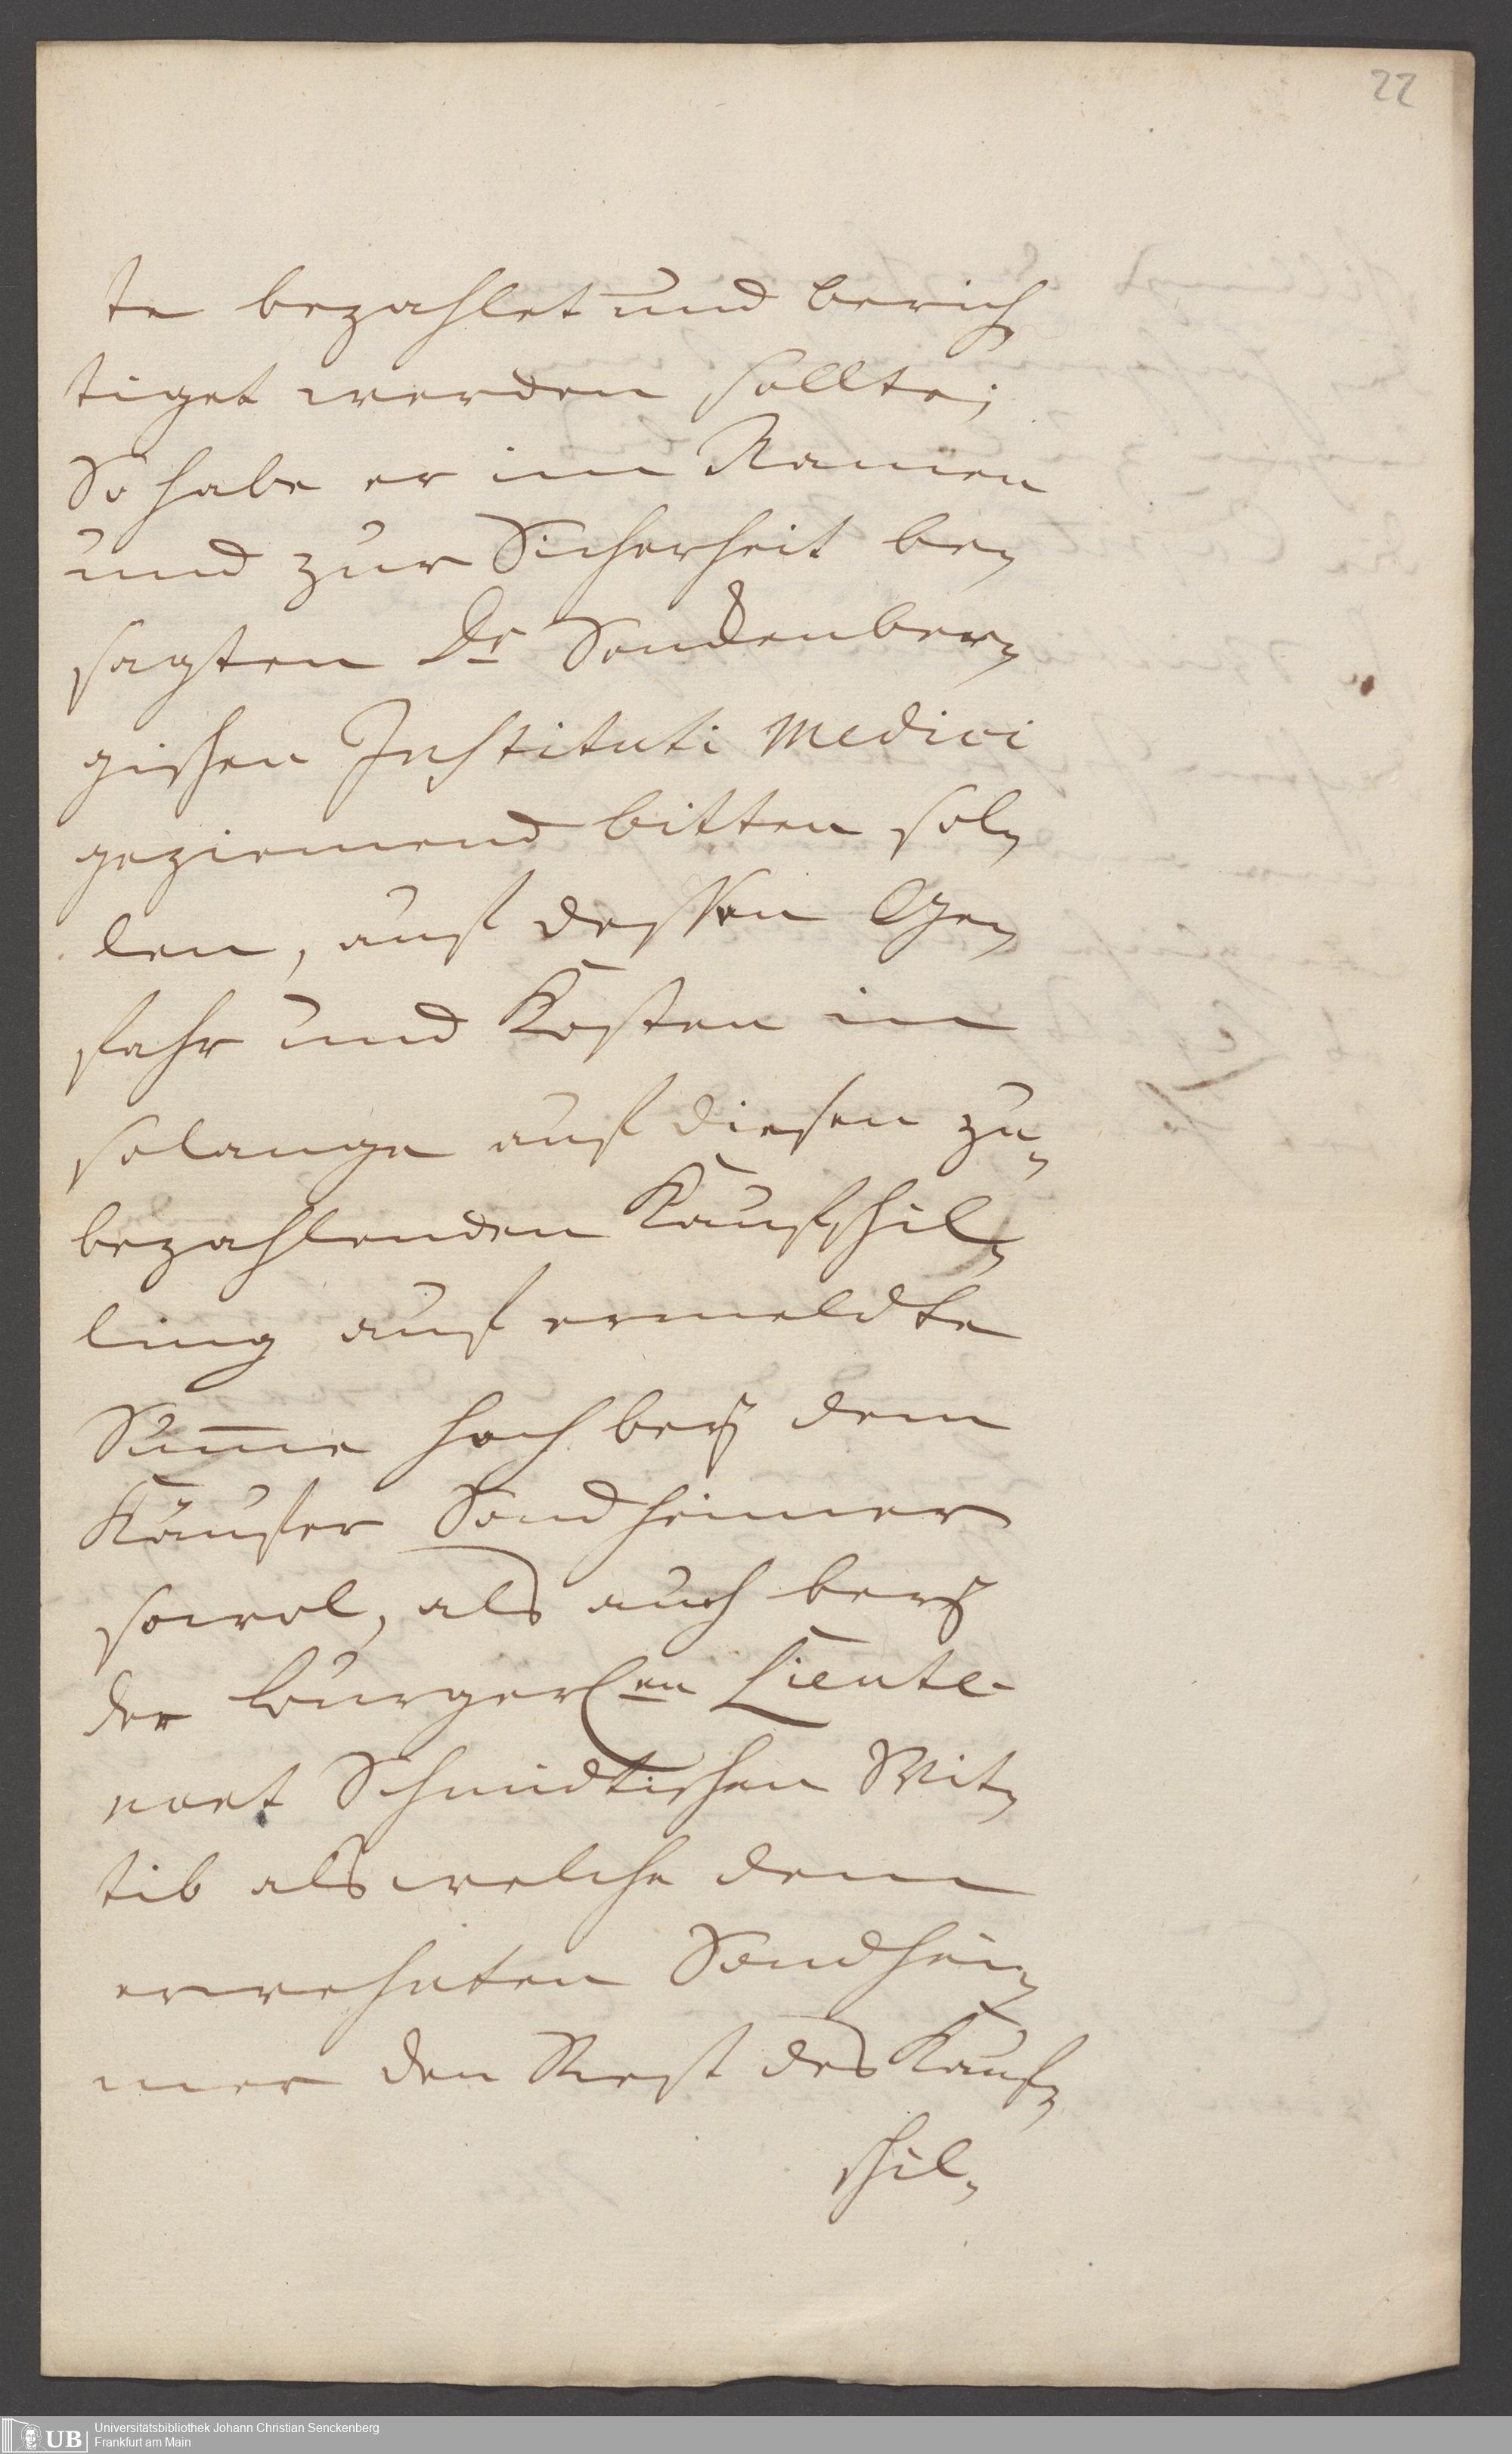 22
te bezahlet und berich-
tiget werden sollte;
So habe er im Namen
und zur Sicherheit be-
sagten Dr Senckenber-
gischen Instituti Medici
geziemend bitten sol-
len, auf dessen Ge-
fahr und Kosten in
solange auf diesen zu-
bezahlenden Kaufschil-
ling auf ermeldte
Sum̅e hoch bey dem
Käufer Sondheimer
sowol, als auch bey
der burgerlen Lieute-
nant Schmidtischen Wit-
tib als welche dem
erwehnten Sondhei-
mer den Rest des Kauf-
schil-
UB
Universitätsbibliothek Johann Christian Senckenberg
Frankfurt am Main